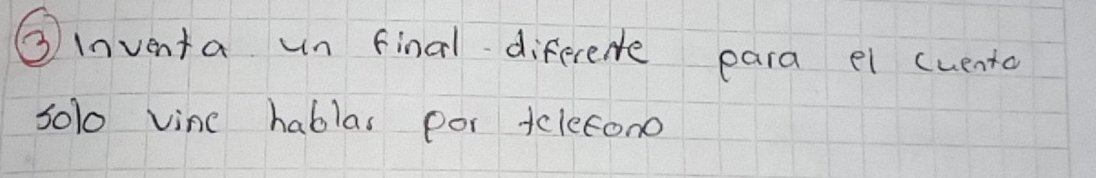 3 Inventa un final diferente para el cuento
solo vine hablas por telefono